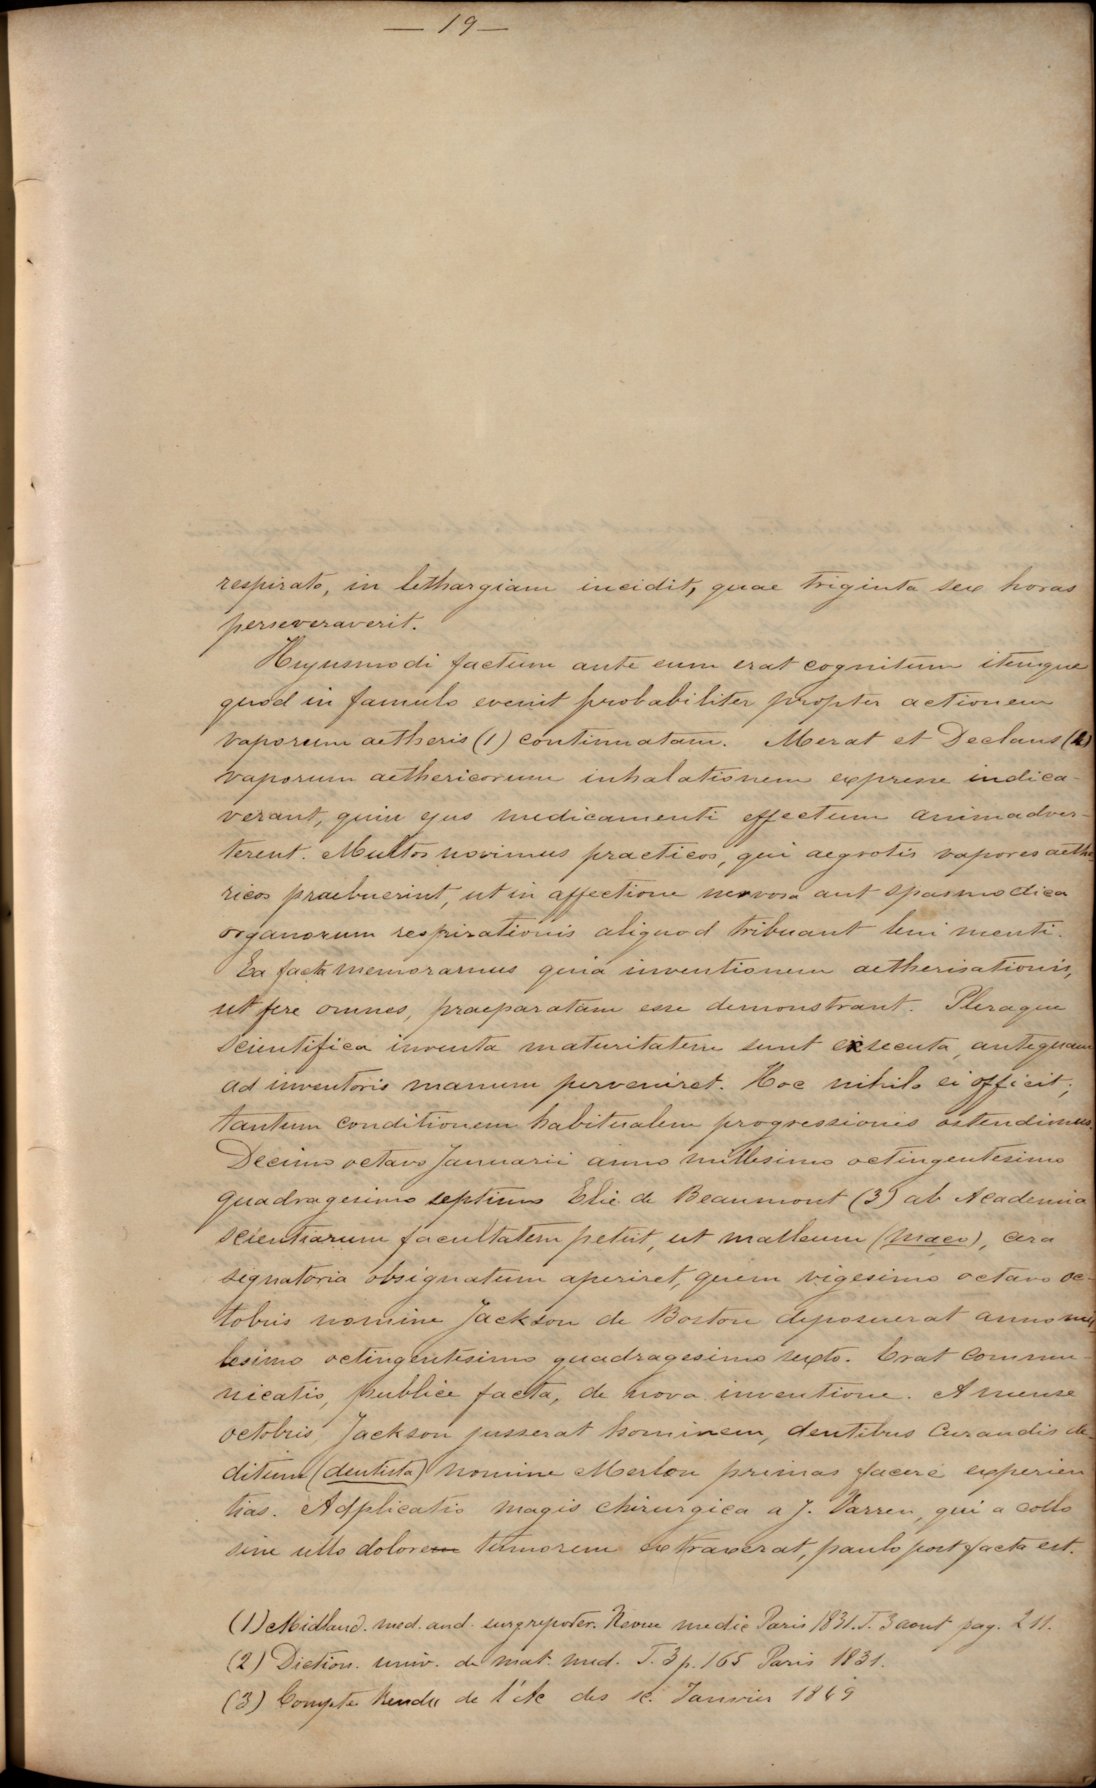 — 19 —
respirato, in lethargiam incidit, quae triginta sex horas
perseveraverit.
Hujusmodi factum ante eum erat cognitum itemque
quod in famulo evenit probabiliter propter actionem
vaporum aetheris (1) continuatam. Merat et Declans (2)
vaporum aethericorum inhalationem expresse indica-
verant, quin ejus medicamenti effectum animadver-
terent. Multos novimus practicos, qui aegrotis vapores aethe
ricos praebuerint, ut in affectione nervosa aut spasmodica
organorum respirationis aliquod tribuant levimenti.
Ea facta memoramus quia inventionem aetherisationis,
ut fere omnes, praeparatam esse demonstrant. Pleraque
scientifica inventa maturitatem sunt exsecuta, antequam
ad inventoris manum perveniret. Hoc nihilo ei officit;
tantum conditionem habitualem progressionis ostendimus.
Decimo octavo Januarii anno millesimo octingentesimo
quadragesimo septimo Elie de Beaumont (3) ab Academia
scientiarum facultatem petiit, ut malleum (maco), cera
signatoria obsignatum aperiret, quem vigesimo octavo oc-
tobris nomine Jackson de Boston deposuerat anno mil
lesimo octingentesimo quadragesimo sexto. Erat commu-
nicatio, publice facta, de nova inventione. A mense
octobris, Jackson jusserat hominem, dentibus curandis de-
ditum (dentista) nomine Morton primas facere experien
tias. Adplicatio magis chirurgica a J. Varren, qui a collo
sine ullo dolore tumorem extraxerat, paulo post facta est.
(1) Midland. med. and. surg reporter. Revue medic Paris 1831. T. 3 aout pag. 211.
(2) Diction. univ. de mat. med. T. 3 p. 165 Paris 1831.
(3) Compte Rendu de l'Ac des sc. Janvier 1849